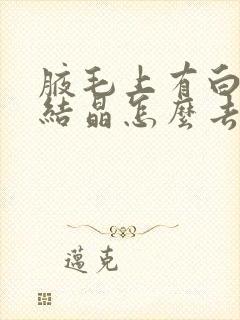 腋毛上有白
結晶怎麼去
邁克